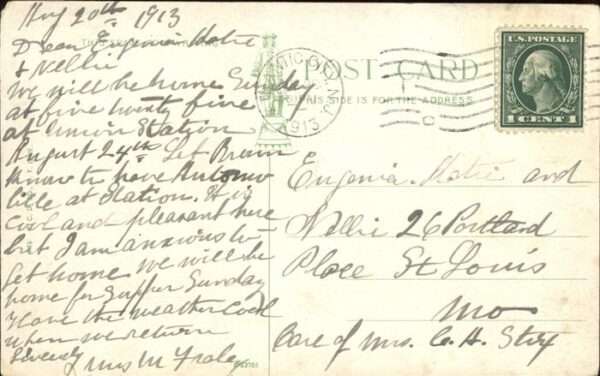 Aug 20th 1913
Dear Eugenia Matie
& Nellie
We will be home Sunday
at five twenty five
at Union Station
August 24th Let
Know to have Automo
bile at Station. It is
Cool and pleasant here
but I am anxious to
get home We will be
home for Supper Sunday
Have the weather Cool
when we return
Mrs M
POST CARD
THIS SIDE IS FOR THE ADDRESS
N.J.
1913
U.S. POSTAGE
1 CENT 1
Eugenia. Matie and
Nellie 26 Portland
Place St Louis
Mo
Care of Mrs. C. H.